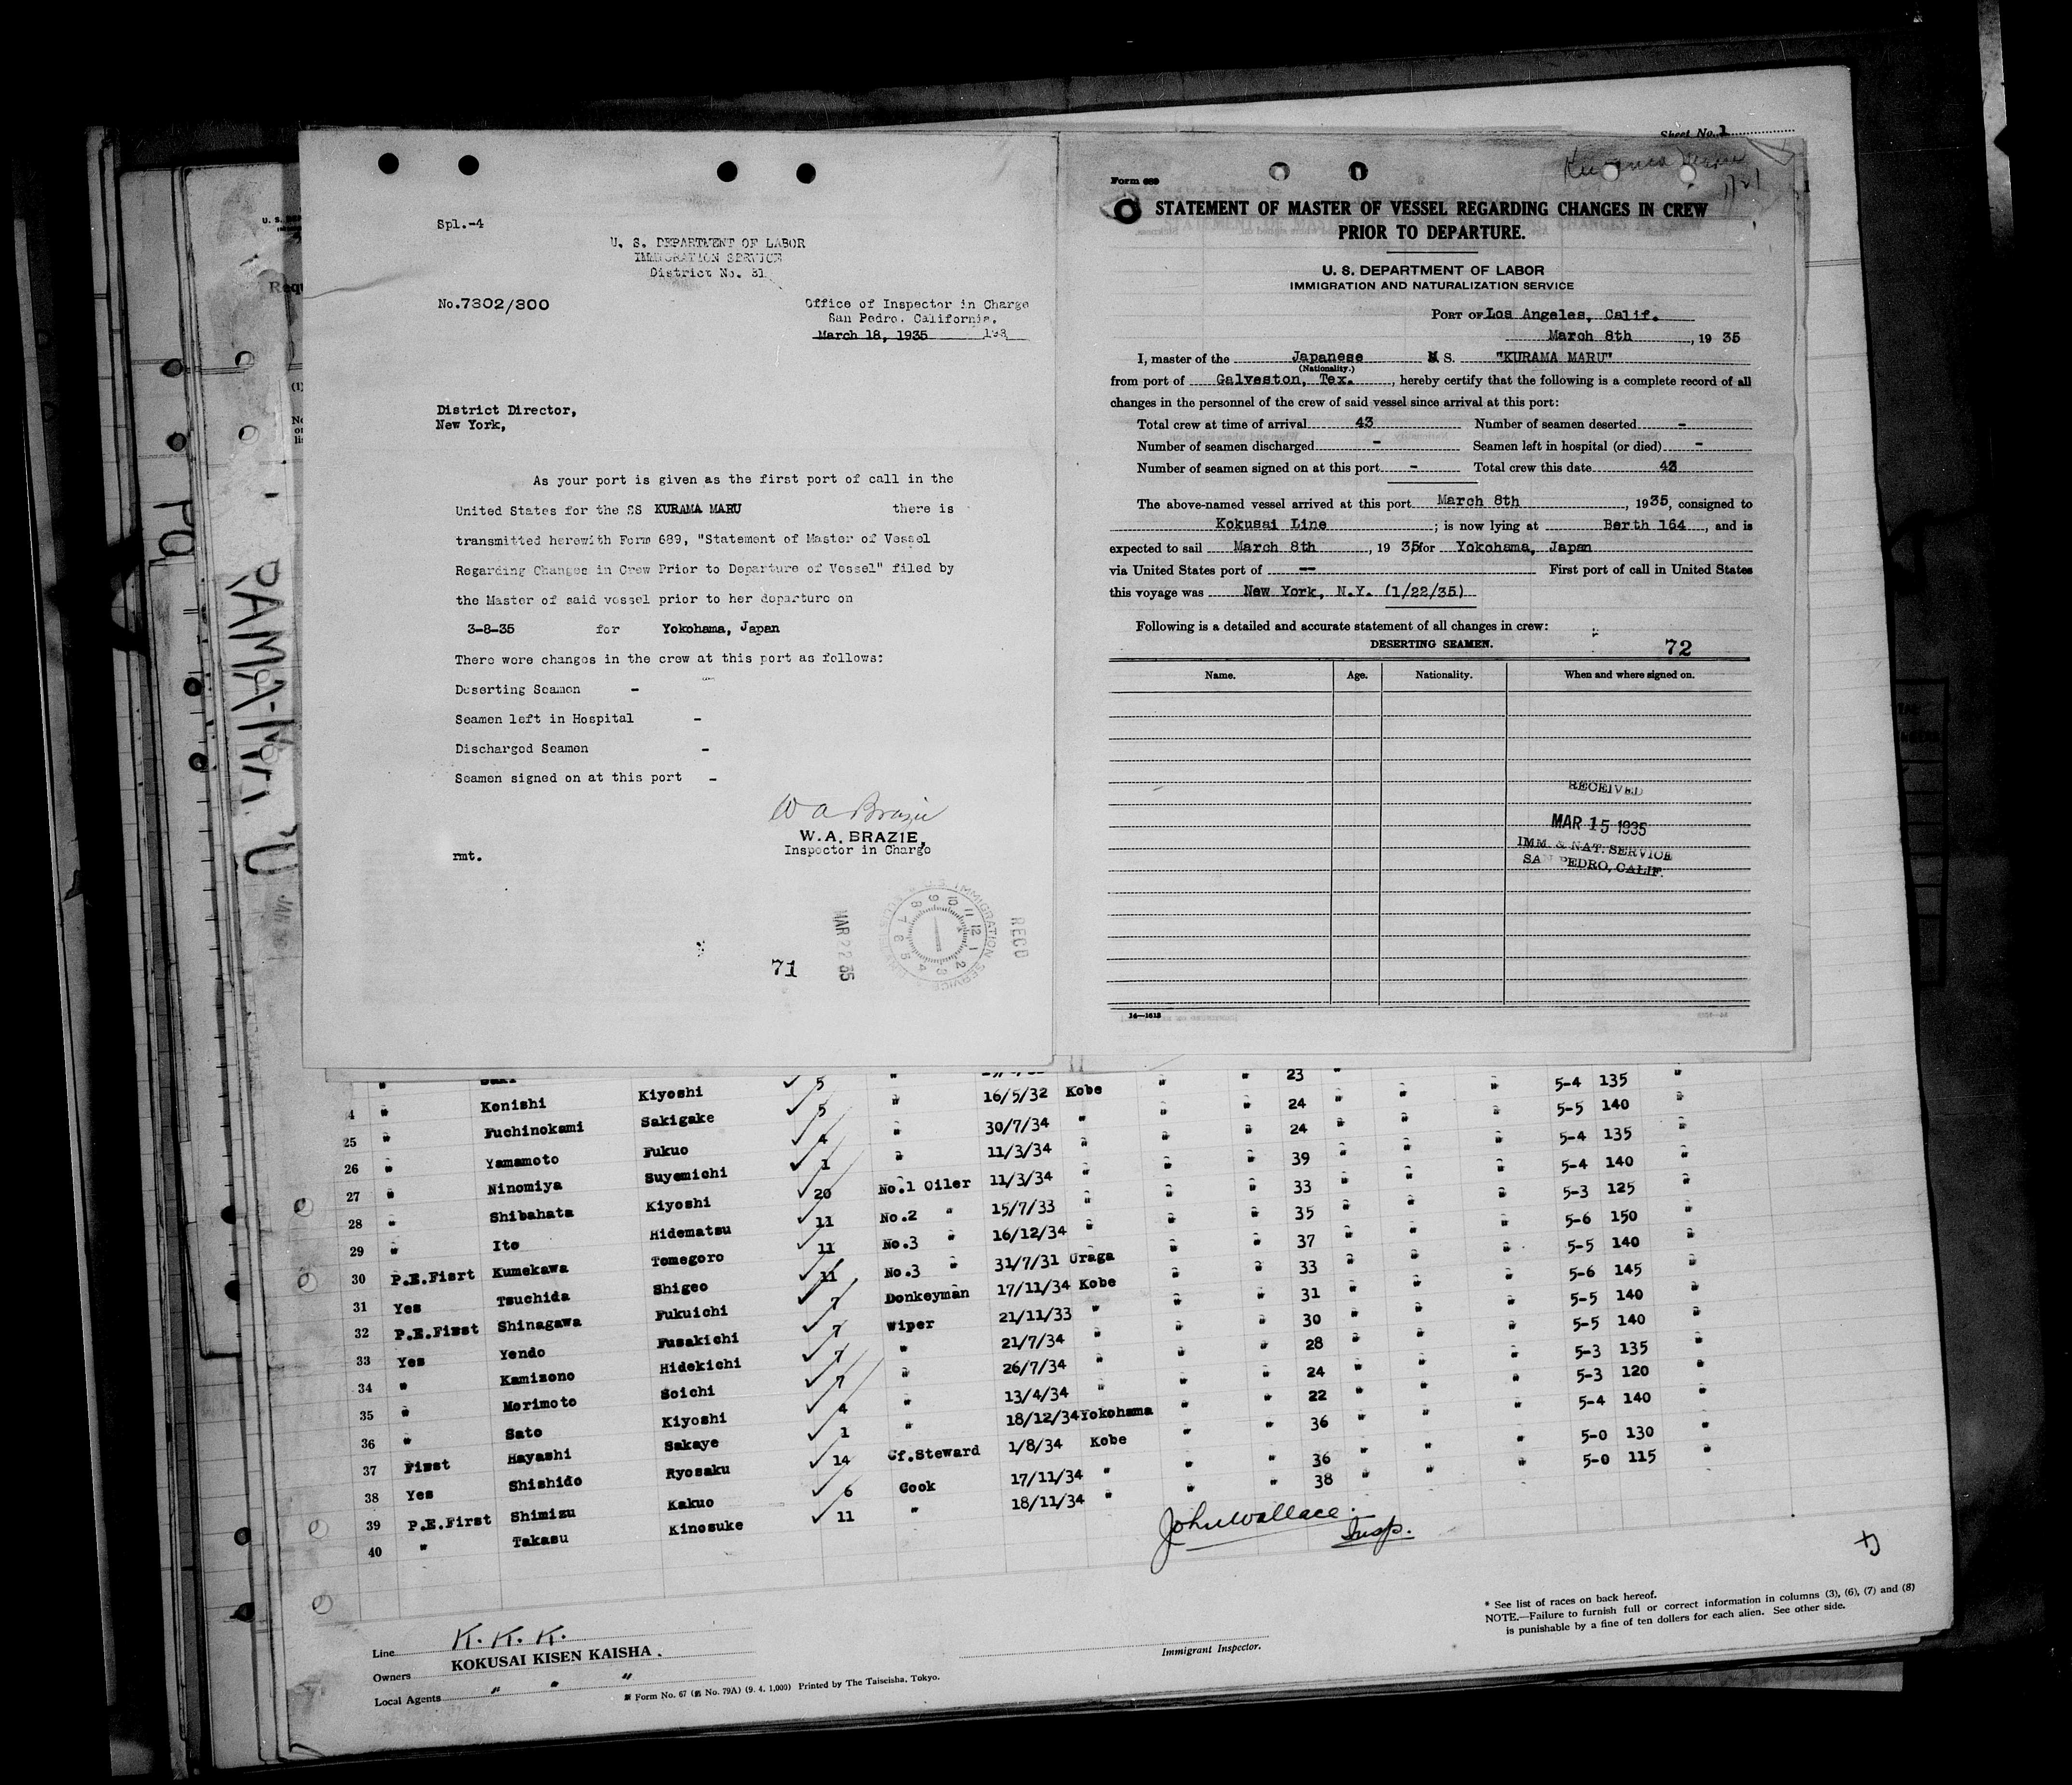 Spl.-4
U. S. DEPARTMENT OF LABOR
IMMIGRATION SERVICE
District No. 31
No.7302/300
Office of Inspector in Charge
San Pedro. California.
March 18, 1935 193
District Director,
New York,
As your port is given as the first port of call in the
United States for the SS KURAMA MARU there is
transmitted herewith Form 689, "Statement of Master of Vessel
Regarding Changes in Crew Prior to Departure of Vessel" filed by
the Master of said vessel prior to her departure on
3-8-35 for Yokohama, Japan
There were changes in the crew at this port as follows:
Deserting Seamen -
Seamen left in Hospital -
Discharged Seamen -
Seamen signed on at this port -
W A Brazie
W.A. BRAZIE,
Inspector in Charge
rmt.
71
MAR 22 35
REC'D
Sheet No. 1
Kurama Maru
Form 689
STATEMENT OF MASTER OF VESSEL REGARDING CHANGES IN CREW
PRIOR TO DEPARTURE.
U. S. DEPARTMENT OF LABOR
IMMIGRATION AND NATURALIZATION SERVICE
PORT OF Los Angeles, Calif.
March 8th, 19 35
I, master of the Japanese M S. "KURAMA MARU"
(Nationality.)
from port of Galveston, Tex., hereby certify that the following is a complete record of all
changes in the personnel of the crew of said vessel since arrival at this port:
Total crew at time of arrival 43 Number of seamen deserted -
Number of seamen discharged - Seamen left in hospital (or died) -
Number of seamen signed on at this port - Total crew this date 43
The above-named vessel arrived at this port March 8th, 1935, consigned to
Kokusai Line; is now lying at Berth 164, and is
expected to sail March 8th, 19 35 for Yokohama, Japan
via United States port of -- First port of call in United States
this voyage was New York, N.Y. (1/22/35)
Following is a detailed and accurate statement of all changes in crew:
DESERTING SEAMEN. 72
Name. Age. Nationality. When and where signed on.
RECEIVED
MAR 15 1935
IMM. & NAT. SERVICE
SAN PEDRO, CALIF.
14—1613
" Konishi Kiyoshi 5 " 16/5/32 Kobe " " 23 " " " 5-4 135 "
25 " Fuchinokami Sakigake 5 " 30/7/34 " " " 24 " " " 5-5 140 "
26 " Yamamoto Fukuo 4 " 11/3/34 " " " 24 " " " 5-4 135 "
27 " Ninomiya Suyemichi 1 No.1 Oiler 11/3/34 " " " 39 " " " 5-4 140 "
28 " Shibahata Kiyoshi 20 No.2 " 15/7/33 " " " 33 " " " 5-3 125 "
29 " Ito Hidematsu 11 No.3 " 16/12/34 " " " 35 " " " 5-6 150 "
30 P.E.Fisrt Kumekawa Tomegoro 11 No.3 " 31/7/31 Uraga " " 37 " " " 5-5 140 "
31 Yes Tsuchida Shigeo 11 Donkeyman 17/11/34 Kobe " " 33 " " " 5-6 145 "
32 P.E.First Shinagawa Fukuichi 7 Wiper 21/11/33 " " " 31 " " " 5-5 140 "
33 Yes Yendo Fusakichi 7 " 21/7/34 " " " 30 " " " 5-5 140 "
34 " Kamizono Hidekichi 7 " 26/7/34 " " " 28 " " " 5-3 135 "
35 " Morimoto Soichi 7 " 13/4/34 " " " 24 " " " 5-3 120 "
36 " Sato Kiyoshi 4 " 18/12/34 Yokohama " " 22 " " " 5-4 140 "
37 First Hayashi Sakaye 1 Cf.Steward 1/8/34 Kobe " " 36 " " " 5-0 130 "
38 Yes Shishido Ryosaku 14 Cook 17/11/34 " " " 36 " " " 5-0 115 "
39 P.E.First Shimizu Kakuo 6 " 18/11/34 " " " 38 " "
40 " Takasu Kinosuke 11
John Wallace
Insp.
Line K. K. K.
Owners KOKUSAI KISEN KAISHA.
Local Agents " " "
Form No. 67 (No. 79A) (9. 4. 1,000) Printed by The Taiseisha, Tokyo.
Immigrant Inspector.
* See list of races on back hereof.
NOTE.—Failure to furnish full or correct information in columns (3), (6), (7) and (8)
is punishable by a fine of ten dollars for each alien. See other side.